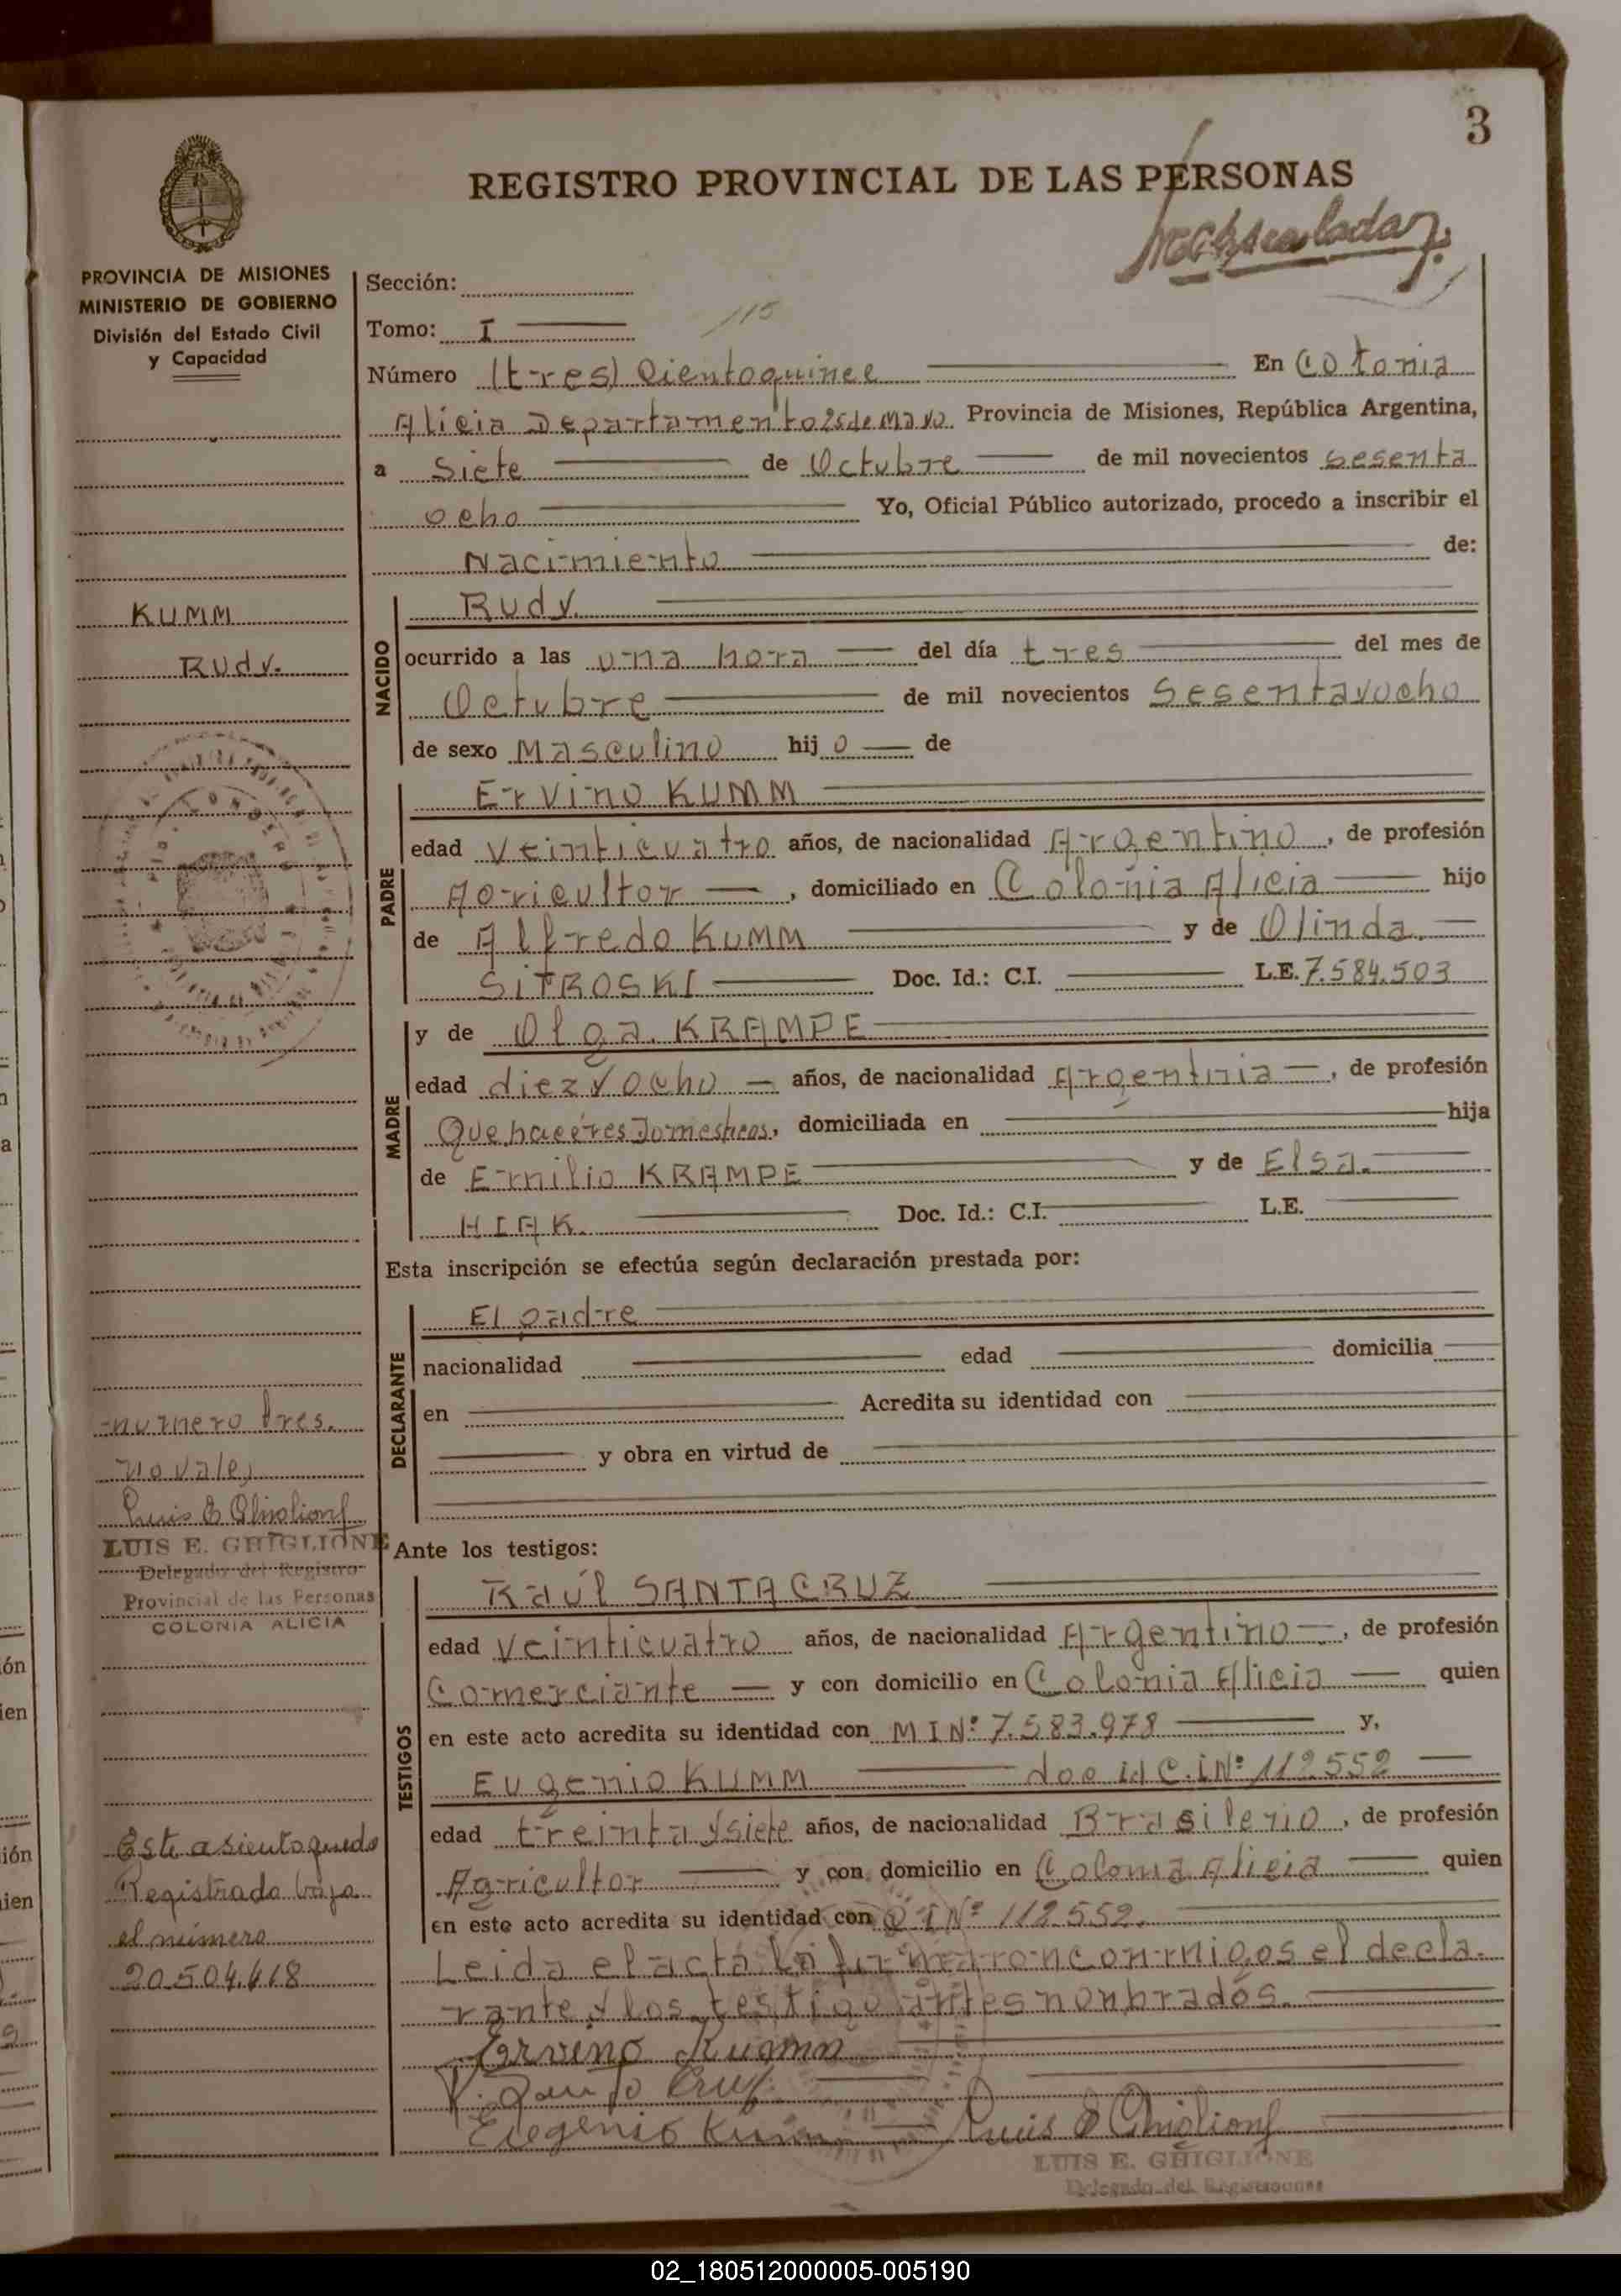 3
REGISTRO PROVINCIAL DE LAS PERSONAS
PROVINCIA DE MISIONES
MINISTERIO DE GOBIERNO
División del Estado Civil
y Capacidad
Sección:
Tomo: I
115
Número (tres) Cientoquince En Colonia
Alicia Departamento 25 de Mayo Provincia de Misiones, República Argentina,
a Siete de Octubre de mil novecientos sesenta
ocho Yo, Oficial Público autorizado, procedo a inscribir el
Nacimiento de:
KUMM
Rudy.
NACIDO
Rudy.
ocurrido a las una hora del día tres del mes de
Octubre de mil novecientos Sesentayocho
de sexo Masculino hij o de
PADRE
Ervino KUMM
edad Veinticuatro años, de nacionalidad Argentino, de profesión
Agricultor, domiciliado en Colonia Alicia hijo
de Alfredo KUMM y de Olinda.
SITROSKI Doc. Id.: C.I. L.E. 7.584.503
MADRE
y de Olga. KRAMPE
edad diezyocho años, de nacionalidad Argentina, de profesión
Quehaceres Domesticos, domiciliada en hija
de Emilio KRAMPE y de Elsa.
HIAK. Doc. Id.: C.I. L.E.
Esta inscripción se efectúa según declaración prestada por:
DECLARANTE
El padre
nacionalidad edad domicilia
en Acredita su identidad con
y obra en virtud de
numero tres.
no vale,
Luis E Ghiglione
LUIS E. GHIGLIONE
Delegado del Registro
Provincial de las Personas
COLONIA ALICIA
Ante los testigos:
TESTIGOS
Raúl SANTACRUZ
edad Veinticuatro años, de nacionalidad Argentino, de profesión
Comerciante y con domicilio en Colonia Alicia quien
en este acto acredita su identidad con M I Nº 7.583.978 y,
Eugenio KUMM doc id C.i Nº 112552
edad treinta ysiete años, de nacionalidad Brasileno, de profesión
Agricultor y con domicilio en Colonia Alicia quien
en este acto acredita su identidad con C I Nº 112552.
Leida el acta la firmaron conmigos el decla-
rante y los testigo antes nonbrados.
Este asiento quedo
Registrado bajo
el número
20.504.418
Ervino Kumm
R. Santa Cruz
Eugenio Kumm Luis E Ghiglione
LUIS E. GHIGLIONE
02_180512000005-005190